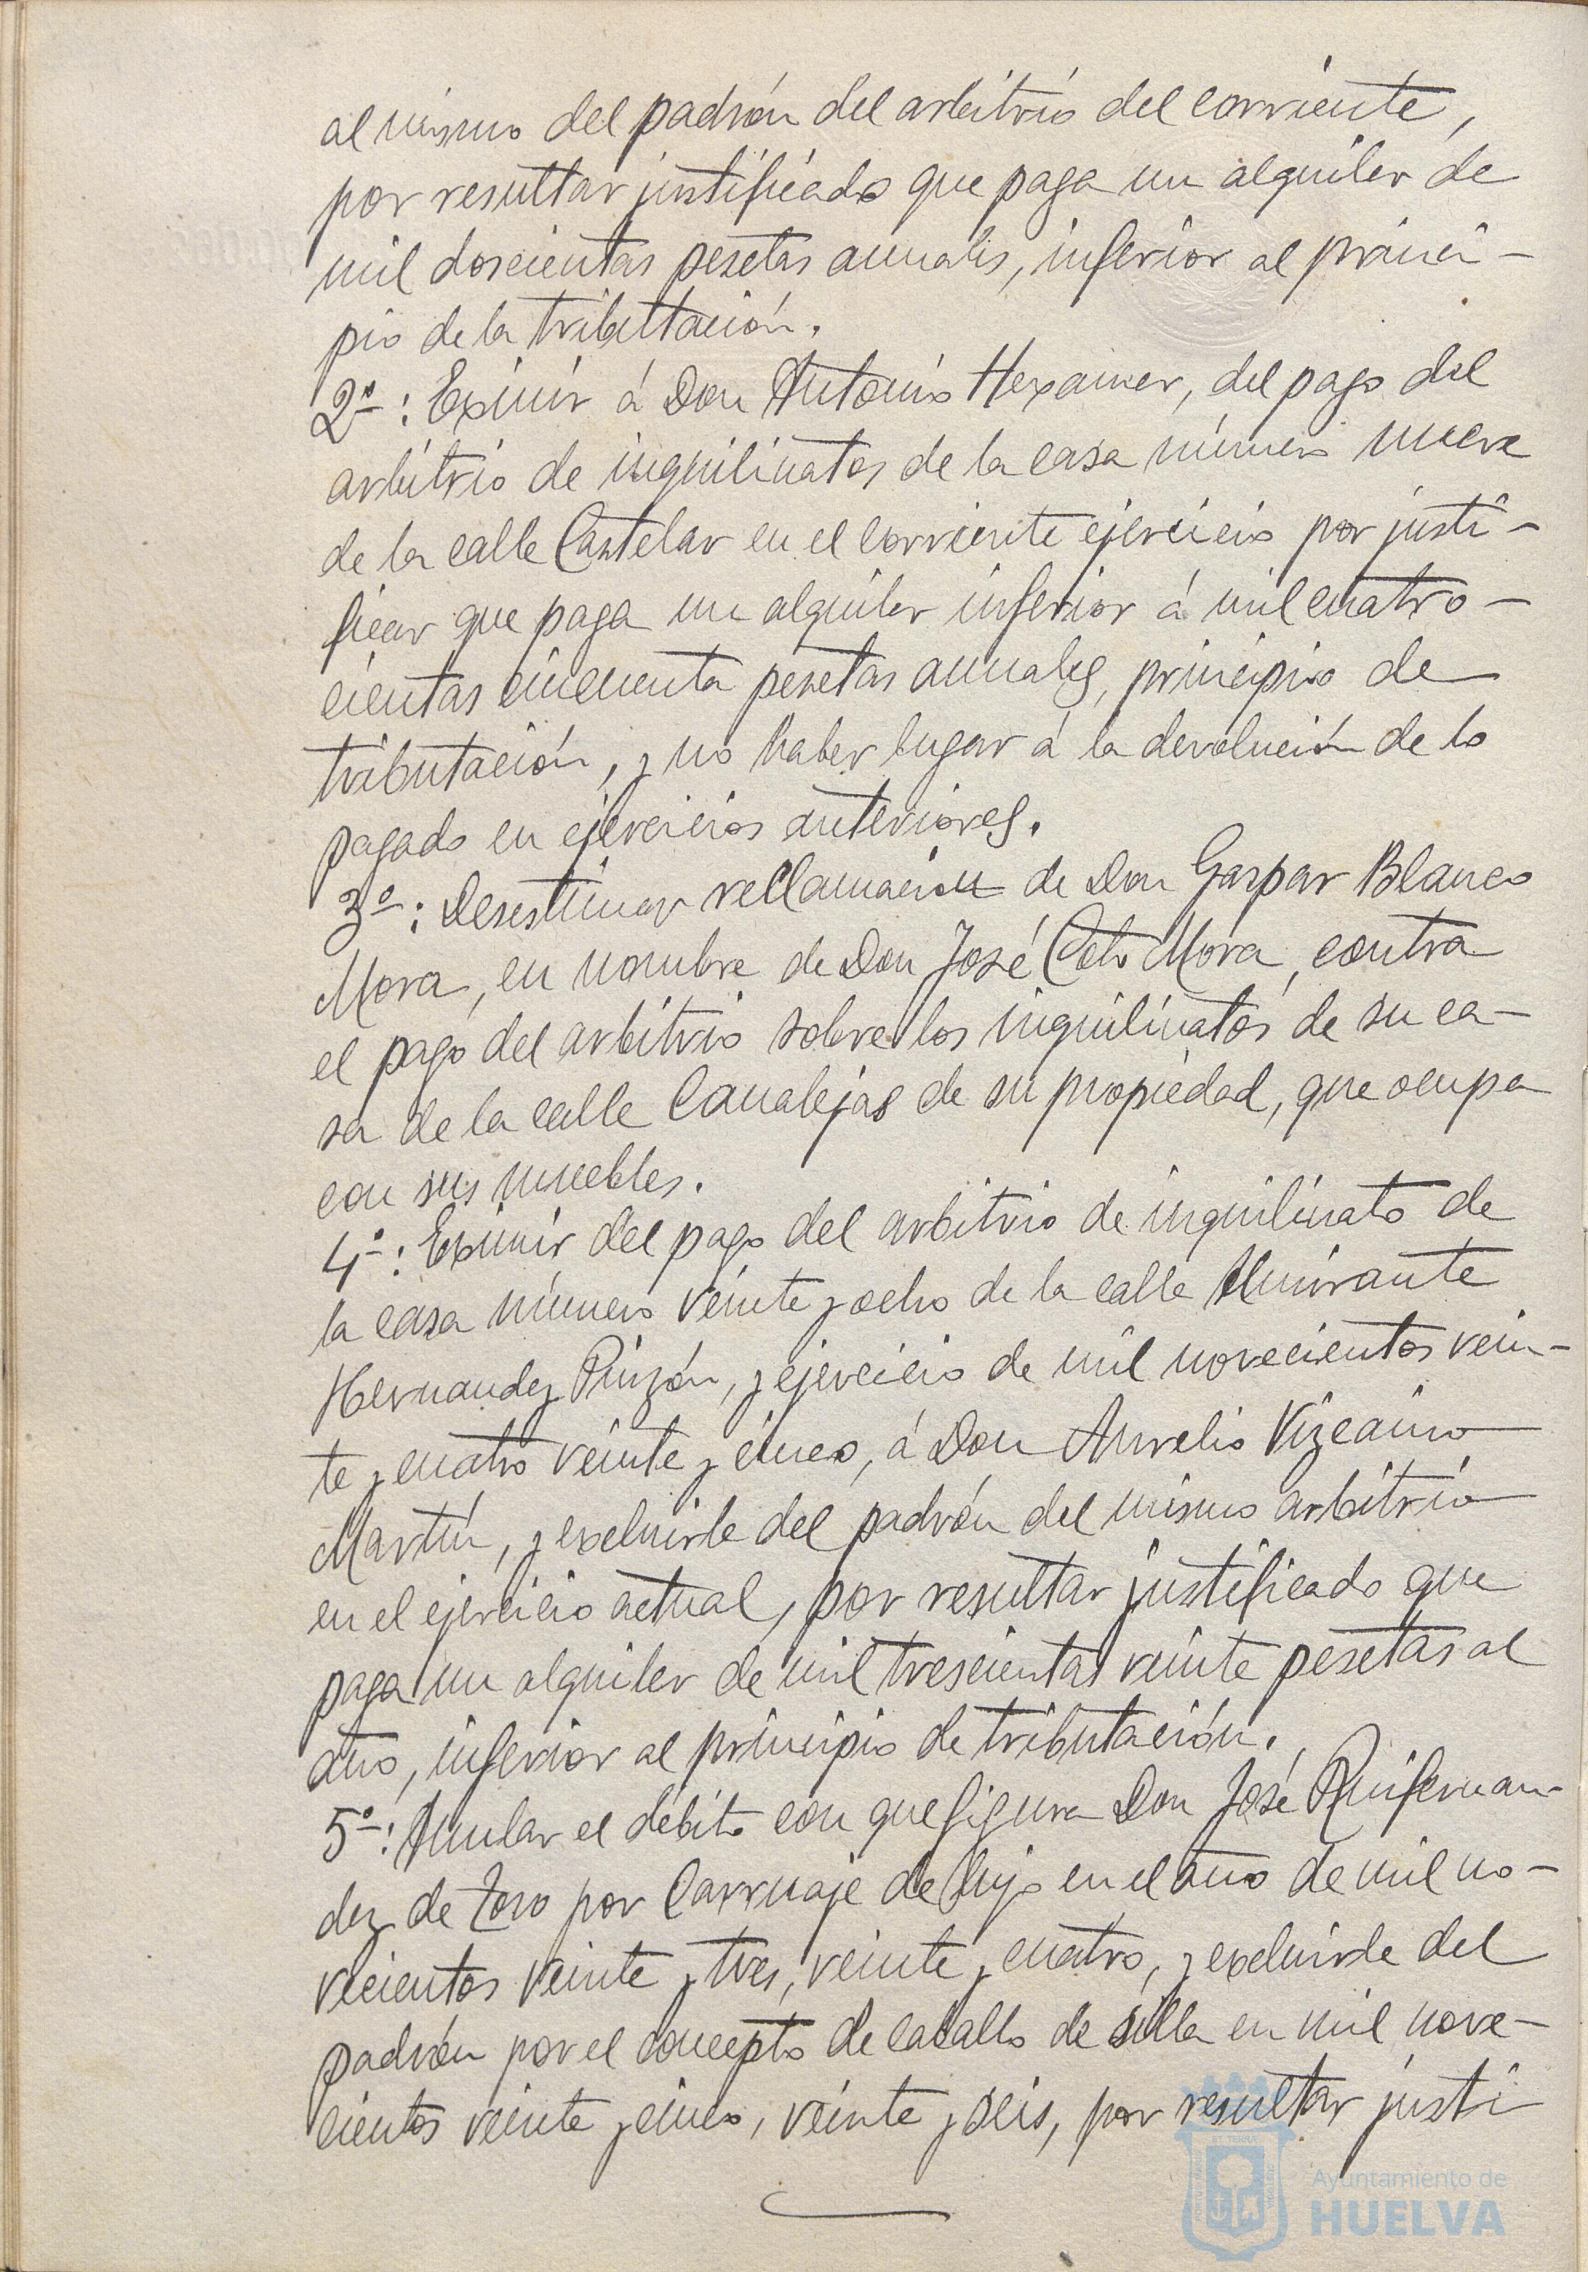 al mismo del padrón del arbitrio del corriente,
por resultar justificado que paga un alquiler de
mil doscientas pesetas anuales, inferior al princi-
pio de la tributtación.
2º: Eximir á Don Antonio Hexamer, del pago del
arbitrio de inquilinatos de la casa número nueve
de la calle Castelar en el corriente ejercicio por justi-
ficar que paga un alquiler inferior á mil cuatro-
cientas cincuenta pesetas anuales, principio de
tributación, y no haber lugar á la devolución de lo
pagado en ejercicios anteriores.
3º: Desestimar reclamación de Don Gaspar Blanco
Mora, en nombre de Don José Coto Mora, contra
el pago del arbitrio sobre los inquilinatos de su ca-
sa de la calle Canalejas de su propiedad, que ocupa
con sus muebles.
4º: Eximir del pago del arbitrio de inquilinato de
la casa número veinte y ocho de la calle Almirante
Hernandez Pinzón, y ejercicio de mil novecientos vein-
te y cuatro veinte y cinco, á Don Aurelio Vizcaino
Martín, y excluirle del padrón del mismo arbitrio
en el ejercicio actual, por resultar justificado que
paga un alquiler de mil trescientas veinte pesetas al
año, inferior al principio de tributación.
5º: Anular el débito con que figura Don José Ruifernan-
dez de Toro por Carruaje de lujo en el año de mil no-
vecientos veinte y tres, veinte y cuatro, y excluirle del
padrón por el concepto de caballo de silla en mil nove-
cientos veinte y cinco, veinte y seis, por resultar justi
Ayuntamiento de
HUELVA